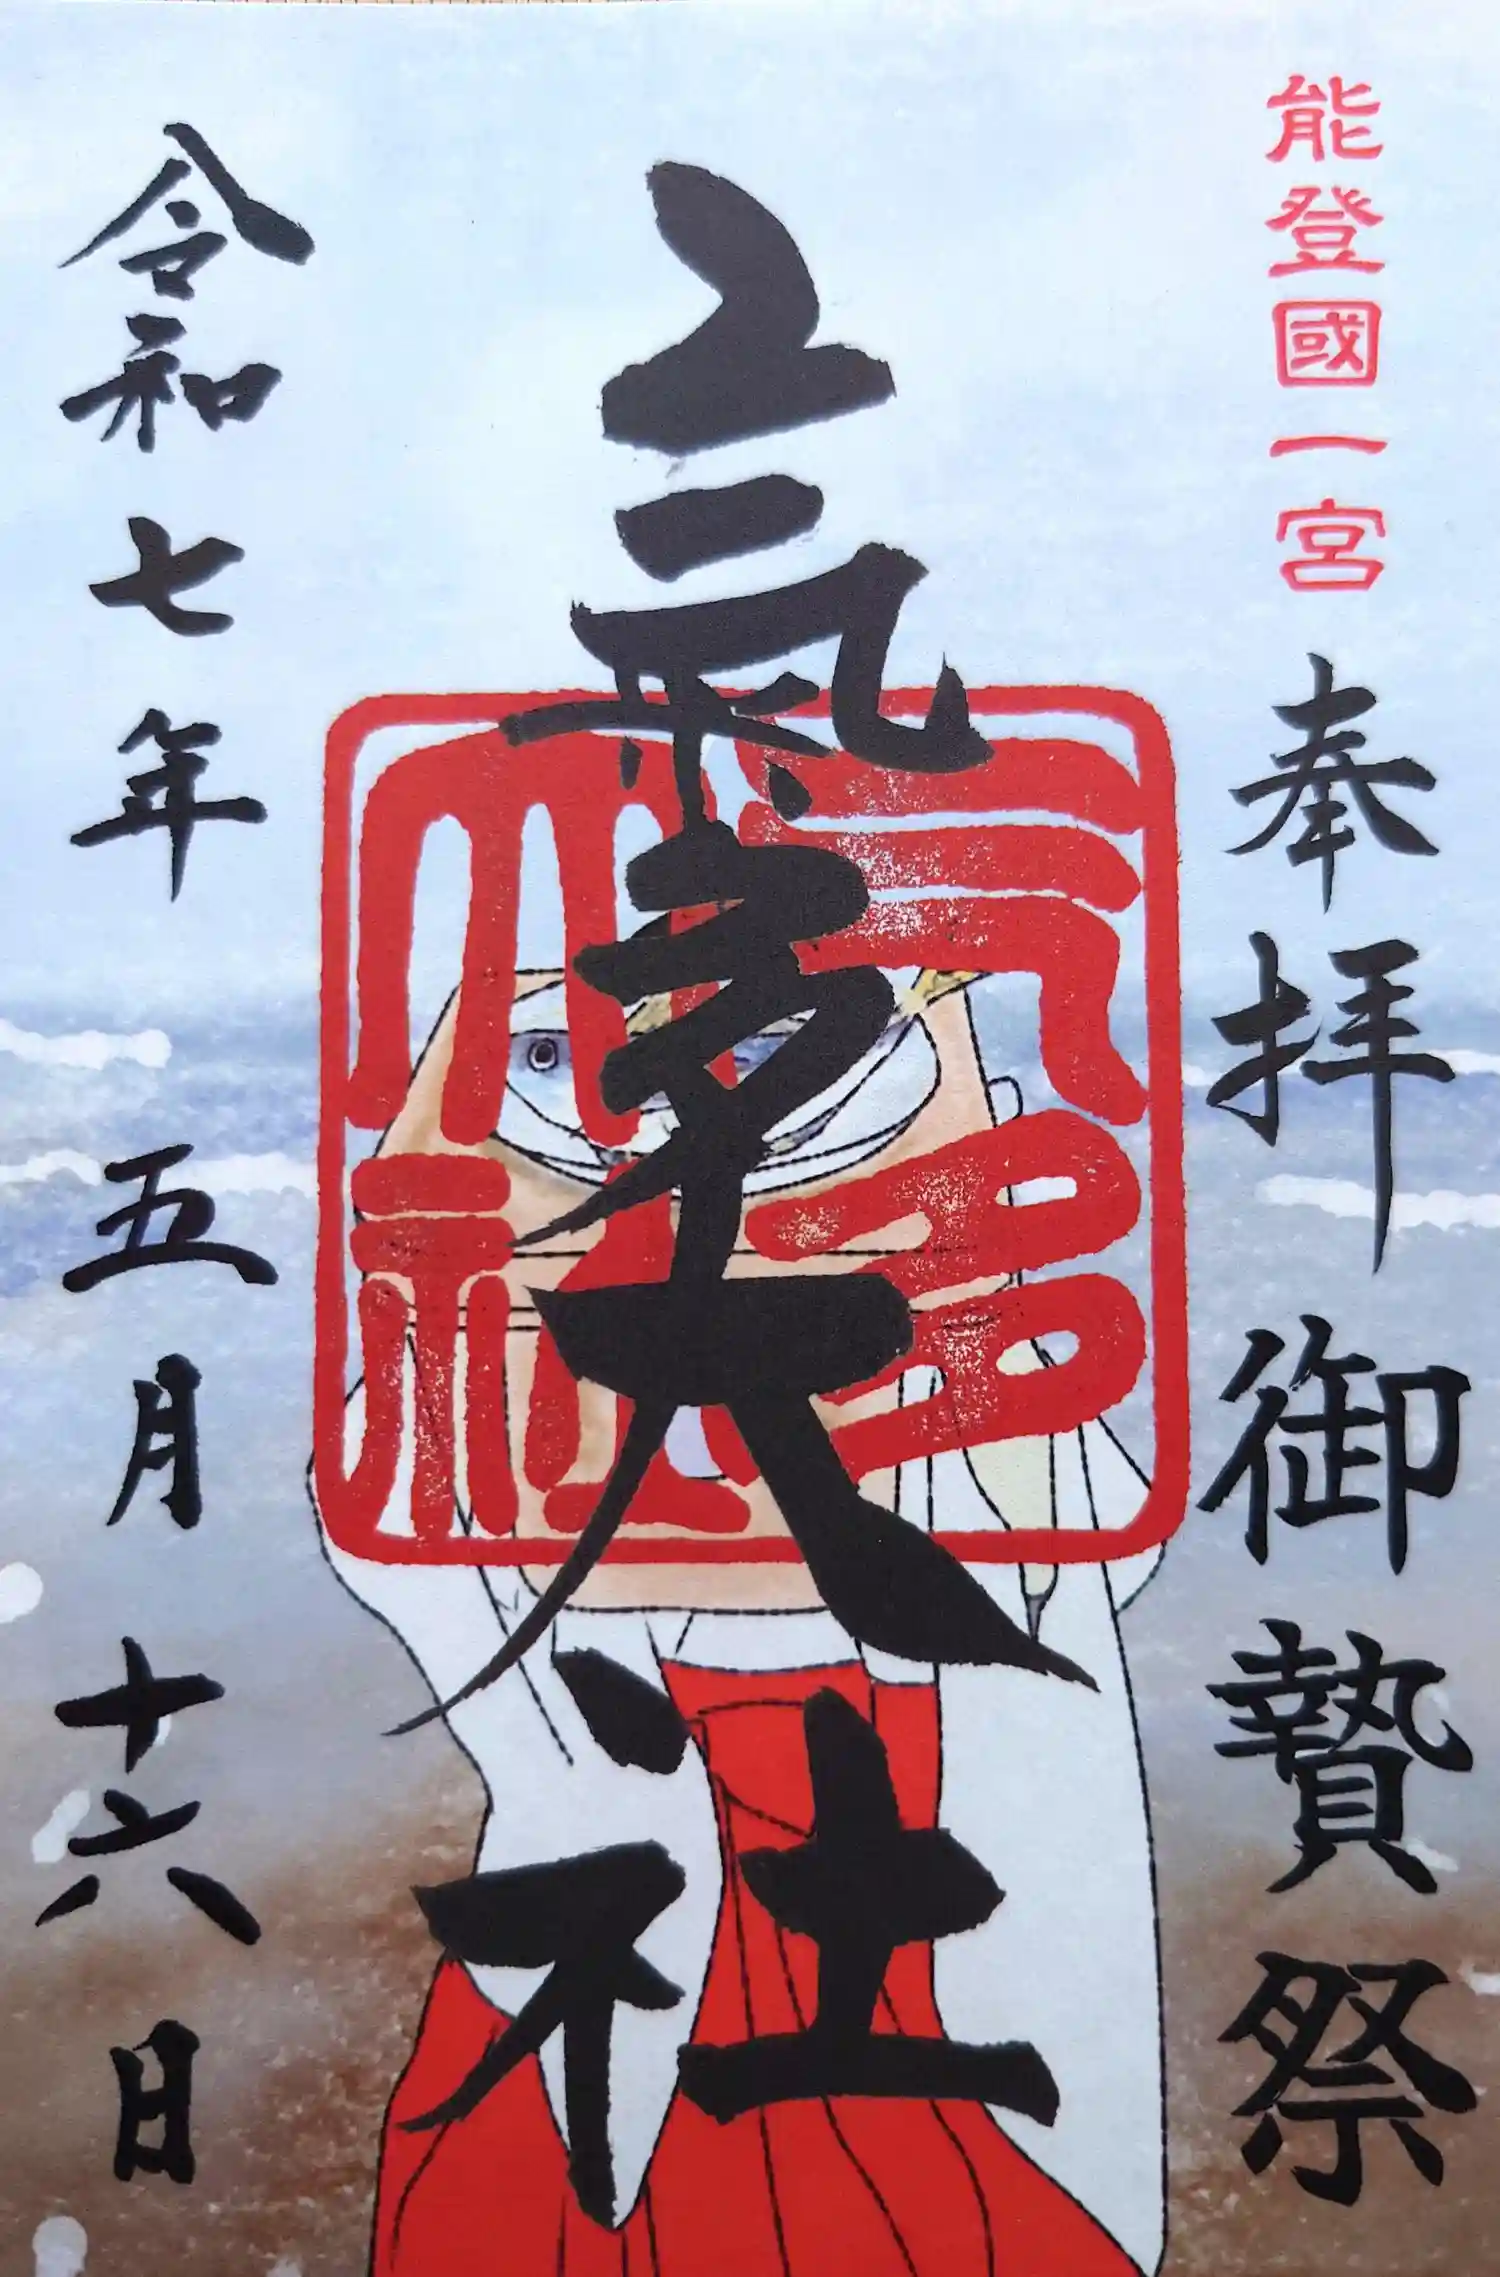 能登國一宮
奉拝 御贄祭
氣多大社
氣多大社
令和七年五月十六日